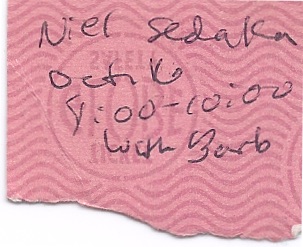 Niel Sedaka
Oct 16
9:00-10:00
with Barb